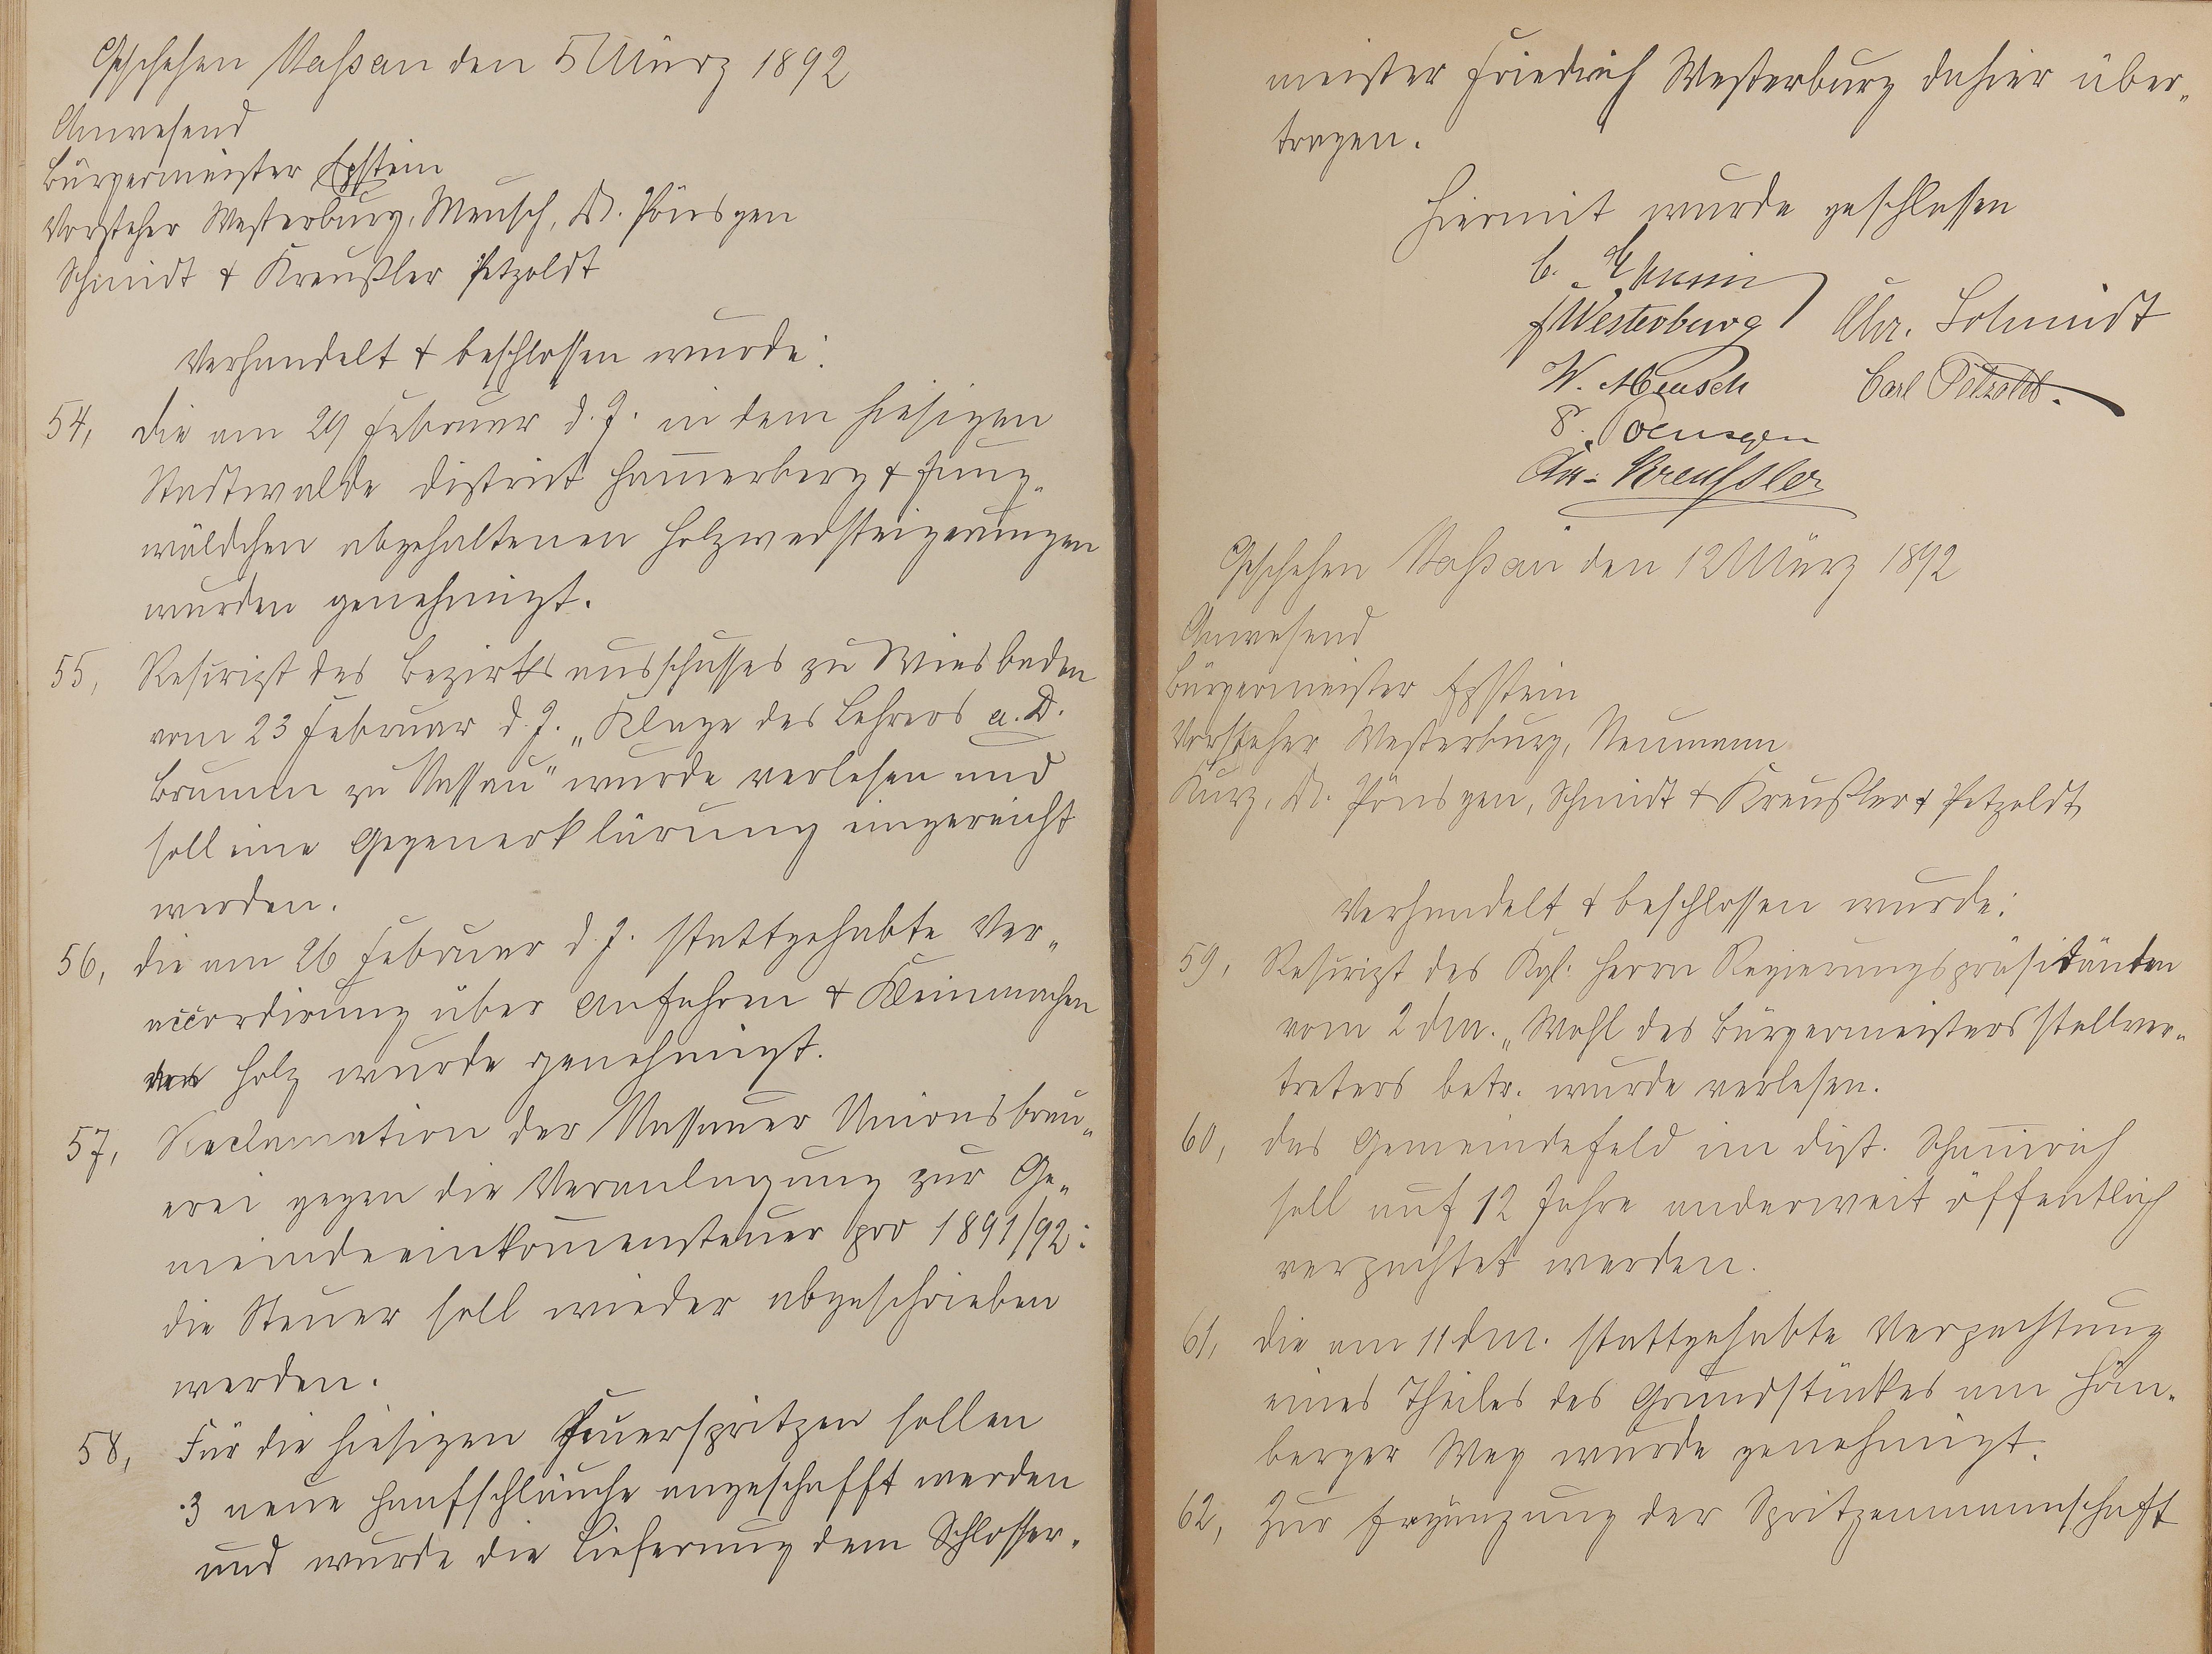 Geschehen Nassau den 5 März 1892
Anwesend
Bürgermeister Epstein
Vorsteher Westerburg, Mensch, Dr. Pönsgen
Schmidt & Kreußler Petzoldt
Verhandelt & beschlossen wurde:
54, die am 29 Februar d. J. in dem hiesigen
Stadtwalde District Ham̅erberg & Jung-
wäldchen abgehaltenen Holzversteigerungen
wurden genehmigt.
55, Rescript des Bezirksausschusses zu Wiesbaden
vom 23 Februar d. J. „Klage des Lehrers a. D.
Brumm zu Nassau" wurde verlesen und
soll eine Gegenerklärung eingereicht
werden.
56, die am 26 Februar d. J. stattgehabte Ver-
accordirung über Anfahren & Kleinmachen
der Holz wurde genehmigt.
57, Reclamation der Nassauer Unionsbrau-
erei gegen die Veranlagung zur Ge-
meindeeinkom̅ensteuer pro 1891/92:
die Steuer soll wieder abgeschrieben
werden.
58, Für die hiesigen Feuerspritzen sollen
3 neue Hanfschläuche angeschafft werden
und wurde die Lieferung dem Schlosser-
meister Friedrich Westerburg dahier über-
tragen.
Hiermit wurde geschlossen
F Westerburg Chr. Schmidt
W. Mensch Carl Petzoldt.
Poensgen
Kreussler
Geschehen Nassau den 12 März 1892
Anwesend
Bürgermeister Epstein
Vorsteher Westerburg, Neumann
Kurz, Dr. Pönsgen, Schmidt & Kreußler & Petzoldt
Verhandelt & beschlossen wurde:
59, Rescript des Kgl. Herrn Regierungspräsidänten
vom 2 d M. „Wahl des Bürgermeistersstellver-
treters betr. wurde verlesen.
60, das Gemeindefeld im Dist.
soll auf 12 Jahre anderweit öffentlich
verpachtet werden.
61, die am 11 d M. stattgehabte Verpachtung
eines Theiles des Grundstückes am Höm-
berger Weg wurde genehmigt.
62, Zur Ergänzung der Spritzenmannschaft